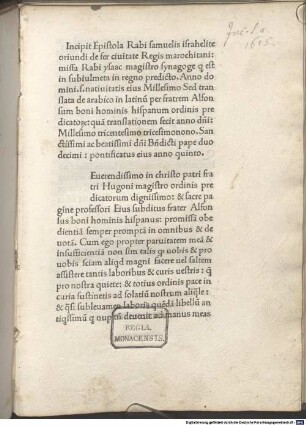 Inc. s. a.
1615.
Incipit Epistola Rabi samuelis israhelite
oriundi de fer ciuitate Regis marochitani:
missa Rabi ysaac magistro synagoge q̄ est
in subiulmeta in regno predicto. Anno do
mini .s. natiuitatis eius Millesimo Sed tran
slata de arabico in latinū per fratrem Alfon
sum boni hominis hispanum ordinis pre
dicatoꝝ: quā translationem fecit anno dn̄i:
Millesimo tricentesimo tricesimonono. San
ctissimi ac beatissimi dn̄i Bn̄dicti pape duo
decimi : pontificatus eius anno quinto.
Euerendissimo in christo patri fra
tri Hugoni magistro ordinis pre
dicatorum dignissimo: & sacre pa
gine professori Eius subditus frater Alfon
sus boni hominis hispanus: promissa obe
dientia semper prompta in omnibus & de
uota. Cum ego propter paruitatem meā &
insufficientiā non sim talis q̄ uobis & pro
uobis sciam aliqd magni facere uel saltem
assistere tantis laboribus & curis uestris: q̄
pro nostra quiete: & totius ordinis pace in
caria sustinetis ad solatiū nostrum aliq̄le: &
q̄si subleuamen laboris quēdā libellū an
tiqissimū q̄ nup deuenit ad manus meas
REGIA
MONACENSIS.